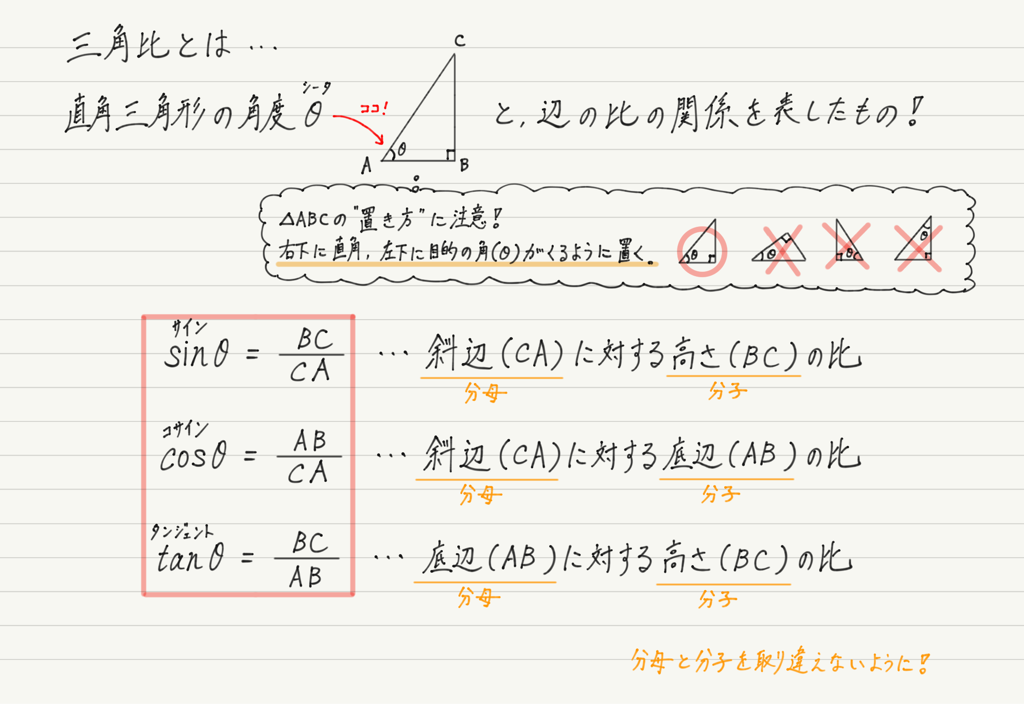 三角比とは…
直角三角形の角度θ と,辺の比の関係を表したもの!
シータ
ココ!
C
A
θ
B
△ABCの"置き方"に注意!
右下に直角,左下に目的の角(θ)がくるように置く。
θ θ θ θ
サイン
sinθ = BC/CA … 斜辺(CA)に対する高さ(BC)の比
分母 分子
コサイン
cosθ = AB/CA … 斜辺(CA)に対する底辺(AB)の比
分母 分子
タンジェント
tanθ = BC/AB … 底辺(AB)に対する高さ(BC)の比
分母 分子
分母と分子を取り違えないように!